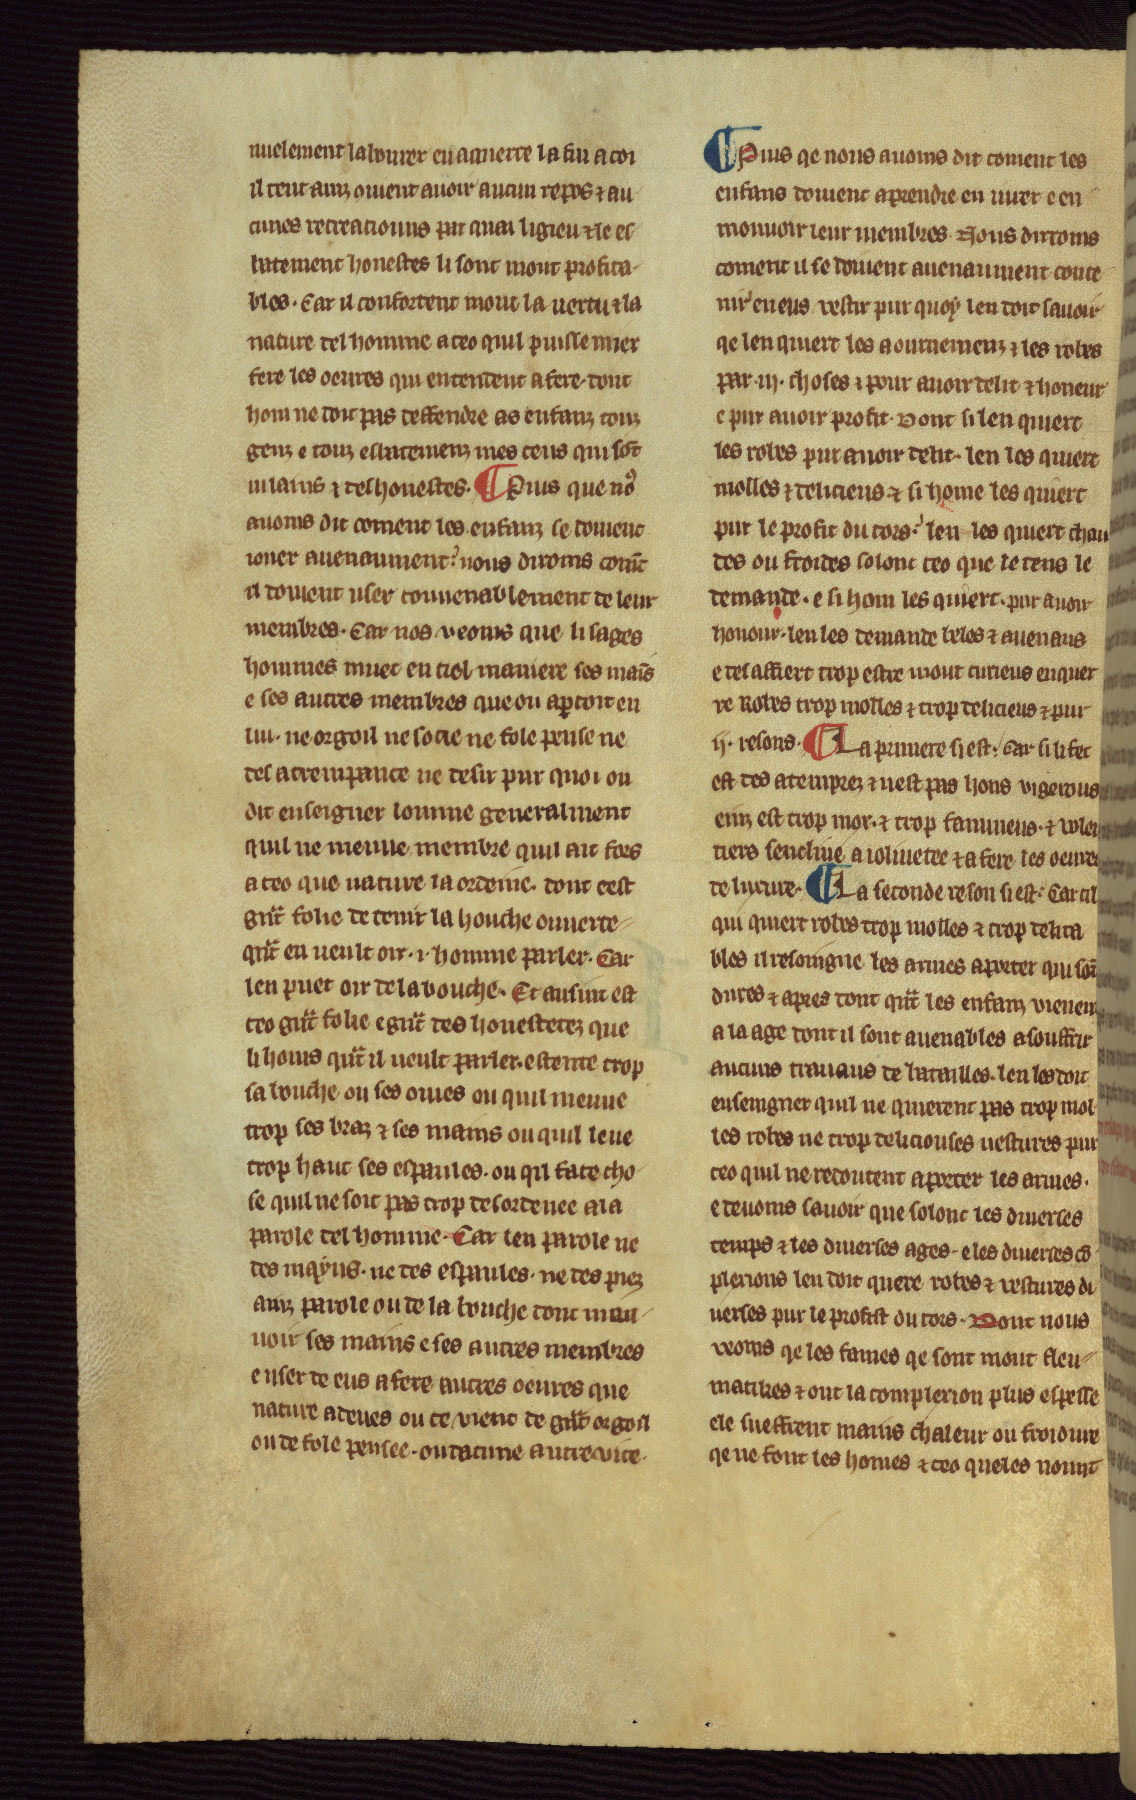 nuelement labourer en aquerre la fin a coi
il tent ainz covient avoir aucun repos ⁊ au
cunes recreacioums par quai li gieu ⁊ le es
batement honestes li sont mout profita-
bles. Car il confortent mout la vertu ⁊ la
nature del homme a ceo quil puisse mier
fere les oevres qui entendent a fere. dont
hom ne doit pas deffendre as enfanz touz
geuz e touz esbatemenz mes ceus qui sōt
vilains ⁊ deshonestes. ¶ Puis que no9
avoms dit coment les enfanz se doivent
iouer avenaument. nous dirroms comt
il doivent user convenablement de leur
membres. Car nos veoms que li sages
hommes muet en tiel maniere ses mais
e ses autres membres que ou apcoit en
lui. ne orgoil ne socie ne fole pense ne
des atrempance ne desir pur quoi ou
dit enseigner lomme generalment
quil ne meuve membre quil ait fors
a ceo que nature la ordeine. dont cest
gnt folie de tenir la bouche ouverte
qnt en veult oir .i. homme parler. Car
len puet oir de la bouche. Et ausint est
ceo gnt folie e gnt deshonestetez que
li homs qnt il veult parler. estente trop
sa bouche ou ses oives ou quil meuve
trop ses braz ⁊ ses mains ou quil leve
trop haut ses espaules. ou qil face cho-
se quil ne soit pas trop desordenee a la
parole del homme. Car len parole ne
des mayns. ne des espaules. ne des piez
ainz parole ou de la bouche dont mau
voir ses mains e ses autres membres
e user de eus a fere autres oeures que
nature a deues ou ce vient de gnt orgoil
ou de fole pensee. ou dacune autre vice.
¶ Puis qe nous avoms dit coment les
enfans doivent aprendre en iuer e en
mouvoir leur membres. Nous dirroms
coment il se doivent avenaument conte
nir en eus vestir pur quoy len doit savoir
qe len quiert les aournemenz ⁊ les robes
par .iij. choses ⁊ pour avoir delit ⁊ honeur
e pur avoir profit. Dont si len quiert
les robes pur avoir delit. len les quiert
molles ⁊ deliciens ⁊ si home les quiert
pur le profit du cors. len les quiert chau
des ou froides solont ceo que le tens le
demande. e si hom les quiert. pur avoir
honour. len les demande beles ⁊ avenans
e des affiert trop estre mout curieus en quer
re Robes trop molles ⁊ trop delicieus ⁊ pur
ij. resons. ¶ La primere si est. Car si li fet
est des atemprez ⁊ nest pas hons vigerous
einz est trop mor. ⁊ trop famineus. ⁊ volen
tiers sencline a ioliuetee ⁊ a fere les oeures
de luxure. ¶ La seconde reson si est. Car cil
qui quiert robes trop molles ⁊ trop delita
bles il resoingne les armes aporter qui sont
dures ⁊ apres dont qnt les enfanz vienent
a la age dont il sont avenables a souffrir
aucuns travaus de batailles. len les doit
enseingner quil ne quierent pas trop mol
les robes ne trop deliciouses vestures pur
ceo quil ne redoutent aporter les armes.
e devoms savoir que solonc les diverses
temps ⁊ les diverses ages. e les diverses cō-
plexions len doit quere robes ⁊ vestures di
verses pur le profist ou cors. Dont nous
veoms qe les fames qe sont mout fleu
matikes ⁊ ont la complexion plus espesse
ele sueffrent mains chaleur ou froidure
qe ne font les homes ⁊ ceo queles nount